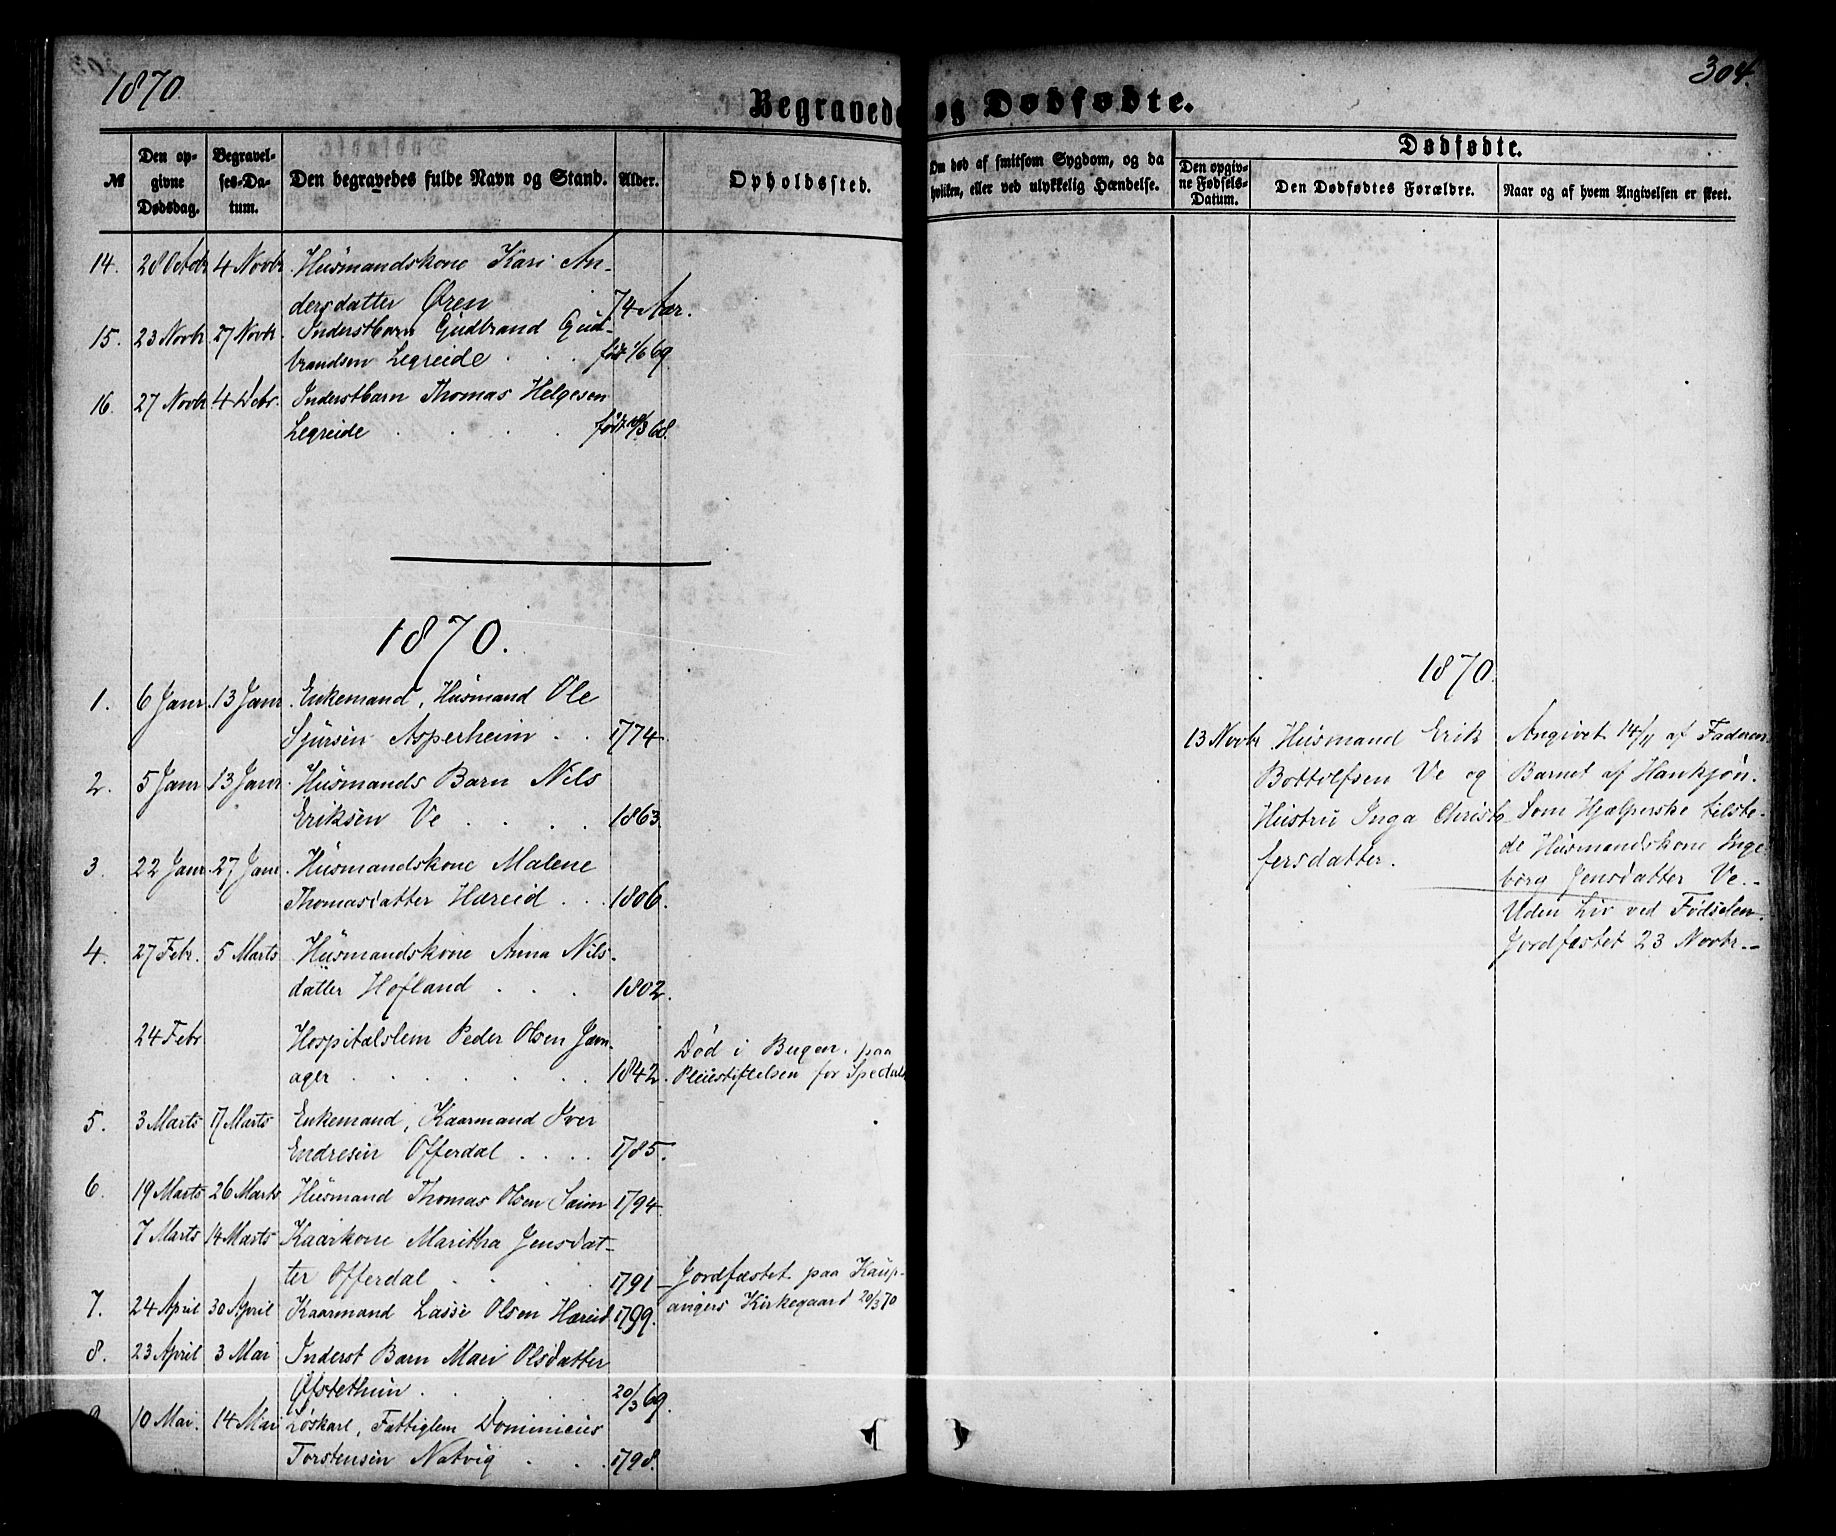 1870.
304.
Begravede og Dødfødte.
№
Den opgivne Dødsdag.
Begravelses-Datum.
Den begravedes fulde Navn og Stand.
Alder.
Opholdssted.
Om død af smitsom Sygdom, og da
hvilken, eller ved ulykkelig Hændelse.
Dødfødte.
Den opgivne Fødsels-Datum.
Den Dødfødtes Forældre.
Naar og af hvem Angivelsen er skeet.
14. 28 Octobr 4 Novbr. Husmandskone Kari An-
dersdatter Øren 74 Aar.
15. 23 Novbr. 27 Novbr. Inderstbarn Gudbrand Gud-
brandsen Legreide . . . født 1/6 69.
16. 27 Novbr 4 Debr. Inderstbarn Thomas Helgesen
Legreide . . . . født /3 68.
1870.
1. 6 Janr. 13 Janr. Enkemand, Husmand Ole
Sjursen Asperheim . . 1774
2. 5 Janr. 13 Janr. Husmands Barn Nils
Eriksen Ve . . . . 1863.
3. 22 Janr. 27 Janr. Husmandskone Malene
Thomasdatter Hæreid . . . 1806.
4. 27 Febr. 5 Marts Husmandskone Anna Nils-
datter Hofland . . . 1802.
24 Febr Hospitalslem Peder Olsen Jam-
ager . . . . . . 1842. Død i Bergen, paa
Pleiestiftelsen for Spedalsk
5. 3 Marts 17 Marts Enkemand, Kaarmand Iver
Endresen Offerdal . . . . 1785.
6. 19 Marts 26 Marts Husmand Thomas Olsen Saim 1794.
7 Marts 14 Marts Kaarkone Maritha Jensdat-
ter Offerdal . . . . 1791 Jordfæstet paa Kaup-
angers Kirkegaard 20/3 70
7. 24 April 30 April Kaarmand Lasse Olsen Hæreid 1799.
8. 23 April 3 Mai Inderst Barn Mari Olsdatter
Ofstethun . . . . 20/3 69.
9. 10 Mai. 14 Mai Løskarl, Fattiglem Dominicus
Torstensen Natvig . . . 1798.
1870.
13 Novbr. Husmand Erik
Bottolfsen Ve og
Hustru Inga Christo-
fersdatter.
Angivet 14/11 af Faderen.
Barnet af Hankjøn.
Som Hjælperske tilste-
de Husmandskone Inge-
borg Jensdatter Ve.-
Uden Liv ved Fødselen.
Jordfæstet 23 Novbr.-